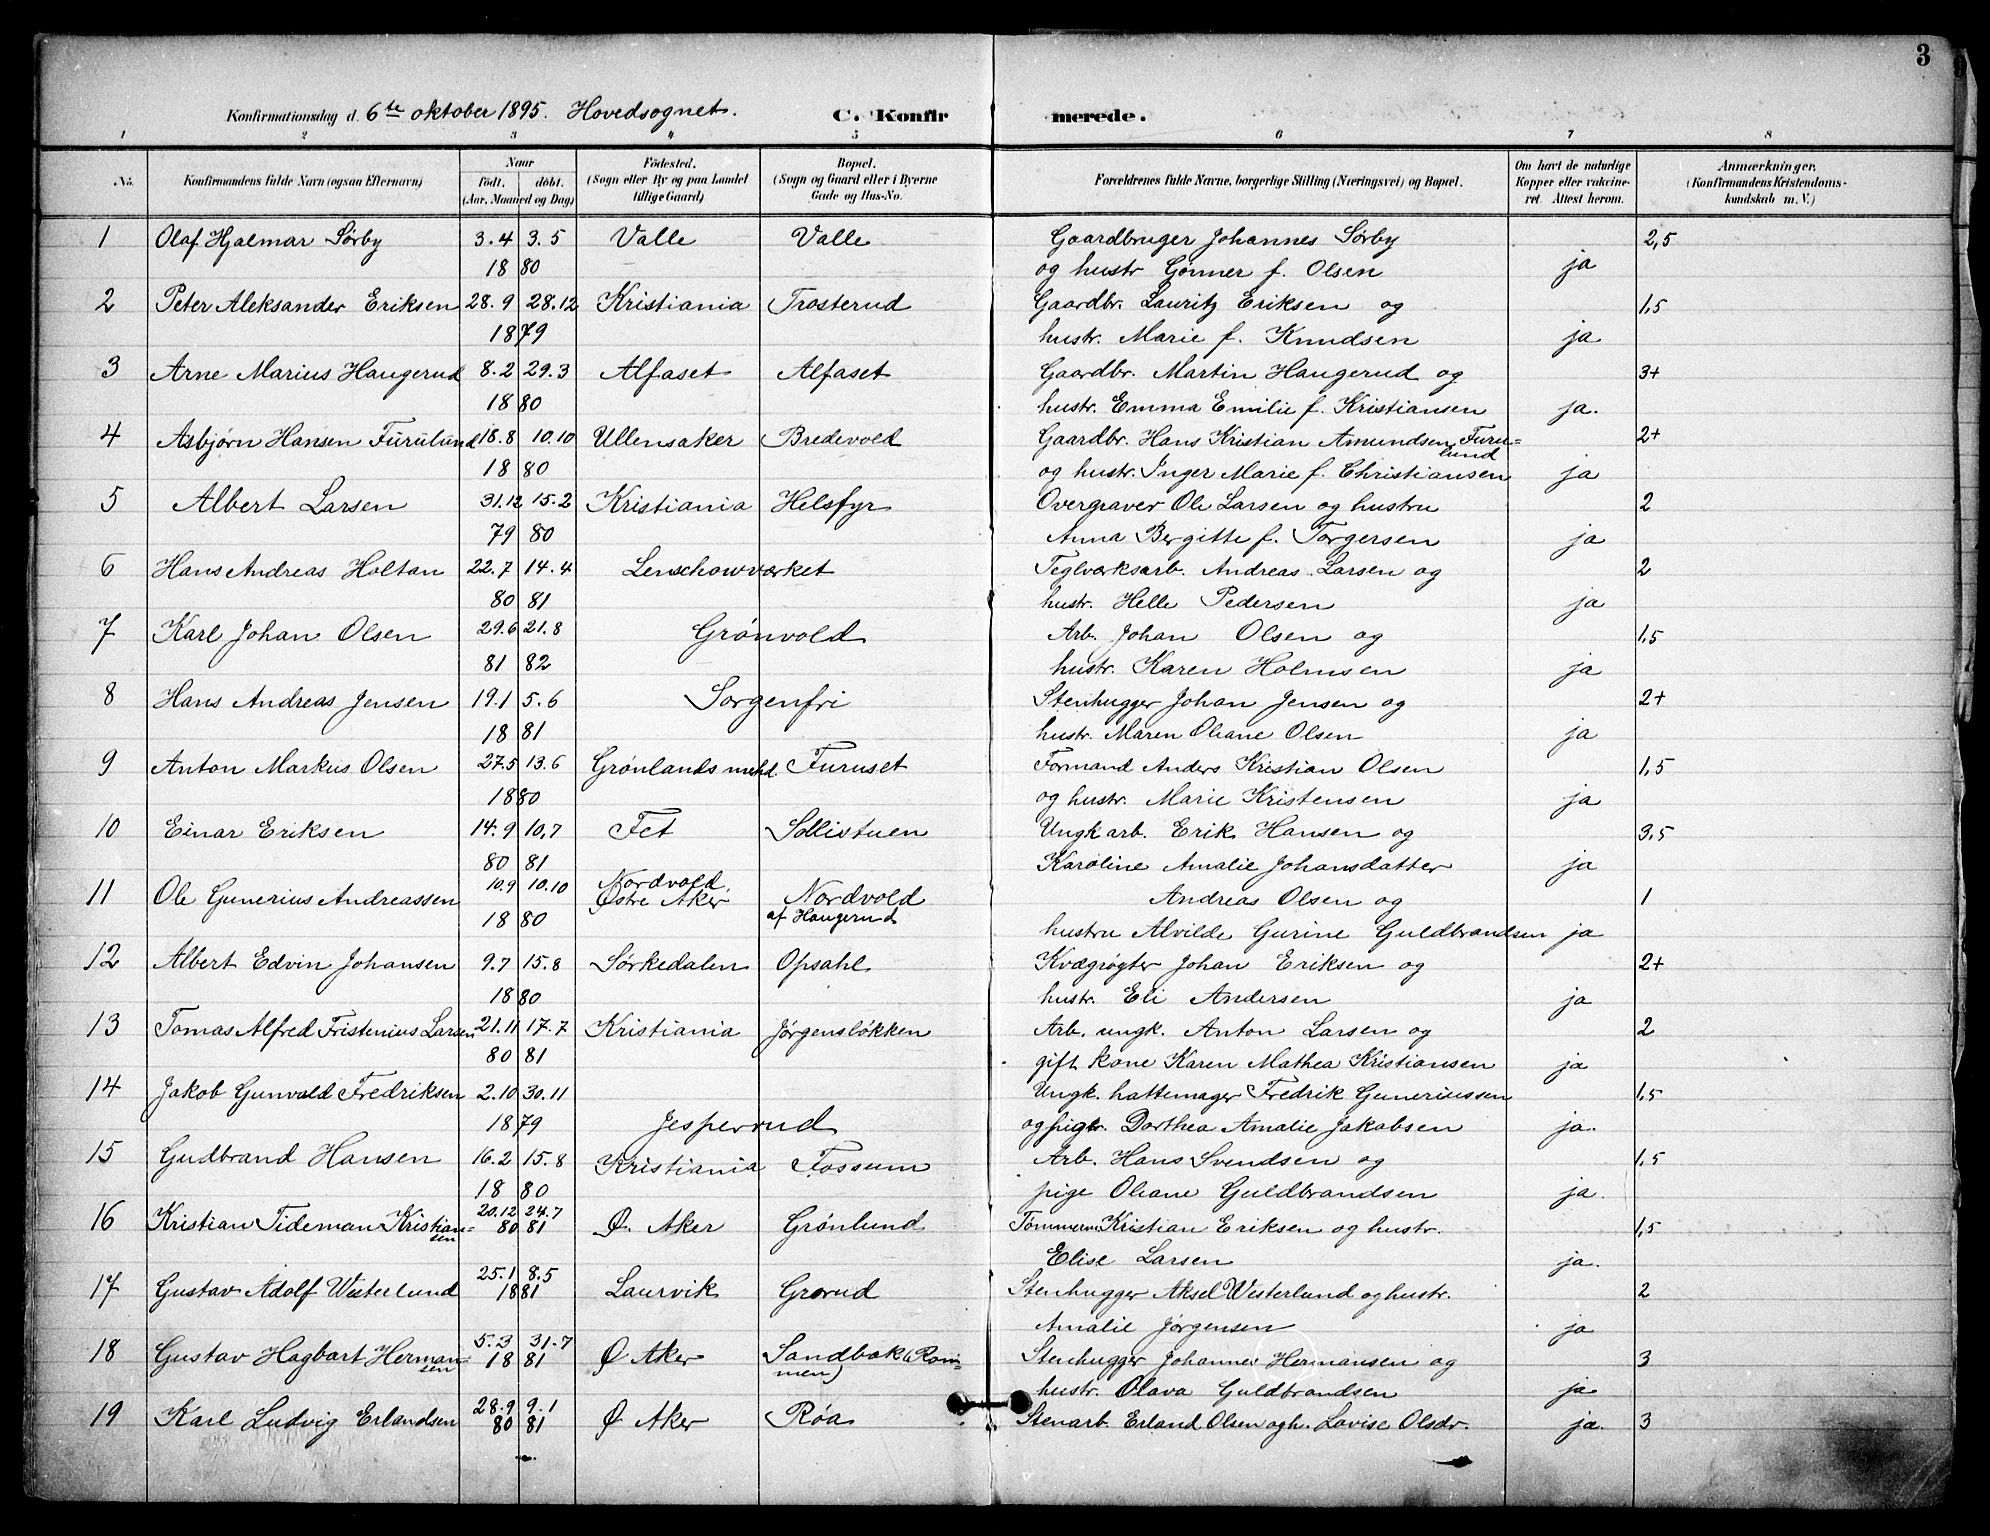 3
Konfirmationsdag d. 6te oktober 1895. Hovedsognet. C. Konfirmerede.
1 2 3 4 5 6 7 8
No. Konfirmandens fulde Navn (ogsaa Efternavn) Naar Födt. döbt. (Aar, Maaned og Dag) Födested. (Sogn eller By og paa Landet tillige Gaard) Bopæl. (Sogn og Gaard eller i Byerne Gade og Hus-No. Forældrenes fulde Navne, borgerlige Stilling (Næringsvei) og Bopæl. Om havt de naturlige Kopper eller vakcineret. Attest herom. Anmærkninger. (Konfirmandens Kristendomskundskab m. V.)
1 Olaf Hjalmar Sørby 3.4 3.5 Valle Valle Gaardbruger Johannes Sørby 2,5
18 80 og hustr Gunner f. Olsen ja
2 Peter Aleksander Eriksen 28.9 28.12 Kristiania Trosterud Gaardbr. Lauritz Eriksen og 1,5
1879 hustr. Marie f. Knudsen ja
3 Arne Marius Haugerud 8.2 29.3 Alfaset Alfaset Gaardbr. Martin Haugerud og 3+
18 80 hustr. Emma Emilie f. Kristiansen ja.
4 Asbjørn Hansen Furulund 18.8 10.10 Ullensaker Bredevold Gaardbr. Hans Kristian Amundsen Furulund 2+
18 80 og hustr. Inger Marie f. Christiansen ja
5 Albert Larsen 31.12 15.2 Kristiania Helsfyr Overgraver Ole Larsen og hustru 2
79 80 Anna Bergitte f. Torgersen ja
6 Hans Andreas Holtan 22.7 14.4 Lenschowværket Teglværksarb. Andreas Larsen og 2
80 81 hustr. Helle Pedersen ja
7 Karl Johan Olsen 29.6 21.8 Grønvold Arb. Johan Olsen og 1,5
81 82 hustr. Karen Holmsen ja
8 Hans Andreas Jensen 19.1 5.6 Sorgenfri Stenhugger Johan Jensen og 2+
18 81 hustr. Maren Oliane Olsen ja
9 Anton Markus Olsen 27.5 13.6 Grønlands mehd. Furuset Formand Anders Kristian Olsen 1,5
1880 og hustr. Marie Kristensen ja
10 Einar Eriksen 14.9 10.7 Fet Sollistuen Ungk arb. Erik Hansen og 3,5
80 81 Karoline Amalie Johansdatter ja
11 Ole Gunerius Andreassen 10.9 10.10 Nordvold, Østre Aker Nordvold af Haugerud Andreas Olsen og 1
18 80 hustru Alvilde Gurine Guldbrandsen ja
12 Albert Edvin Johansen 9.7 15.8 Sørkedalen Opsahl Kvægrøgter Johan Eriksen og 2+
18 80 hustr. Eli Andersen ja
13 Tomas Alfred Fristenius Larsen 21.11 17.7 Kristiania Jørgensløkken Arb. ungk. Anton Larsen og 2
80 81 gift kone Karen Mathea Kristiansen ja
14 Jakob Gunvald Fredriksen 2.10 30.11 Ungk. hattemager Fredrik Guneriussen 1,5
1879 Jesperud og pige. Dorthea Amalie Jakobsen ja.
15 Gudbrand Hansen 16.2 15.8 Kristiania Fossum Arb. Hans Svendsen og 1,5
18 80 pige Oliane Guldbrandsen ja.
16 Kristian Tideman Kristiansen 20.12 24.7 80 81 Ø. Aker Grønlund Tømmerm. Kristian Eriksen og hustr. 1,5
Elise Larsen ja.
17 Gustav Adolf Westerlund 25.1 8.5 1881 Laurvik Grorud Stenhugger Aksel Westerlund og hustr. 2
Amalie Jørgensen ja
18 Gustav Hagbart Hermansen 5.3 31.7 18 81 Ø Aker Sandbak (Rommen) Stenhugger Johannes Hermansen og 3
hustr. Olava Guldbrandsen ja
19 Karl Ludvig Erlandsen 28.9 9.1 80 81 Ø Aker Røa Stenarb. Erland Olsen og h. Lovise Olsdr. ja. 3